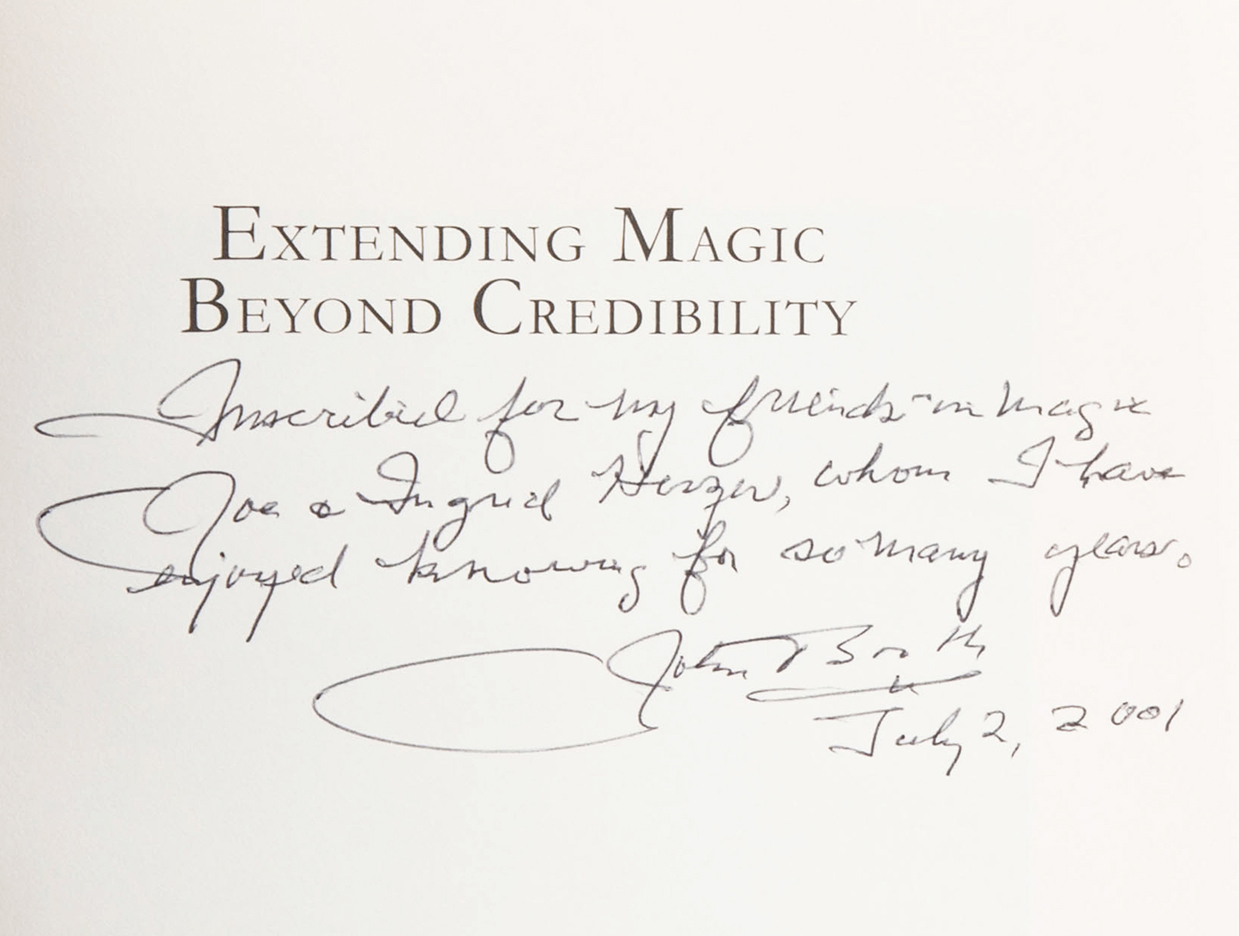 EXTENDING MAGIC
BEYOND CREDIBILITY
Inscribed for my friends in magic
Joe & Ingrid whom I have
enjoyed knowing for so many years.
John Booth
July 2, 2001